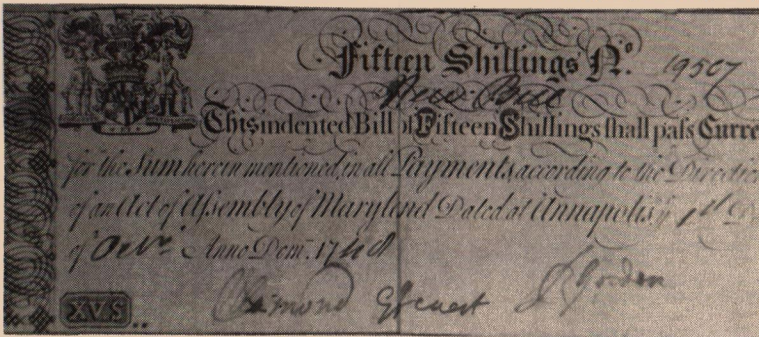 Fifteen Shillings No. 19507
New Bill
This indented Bill of Fifteen Shillings shall pass Curre
for the Sum herein mentioned, in all Payments, according to the Directio
of an Act of Assembly of Maryland Dated at Annapolis, ye 1st D
of Octr. Anno Dom. 1748
XV S
Gordon